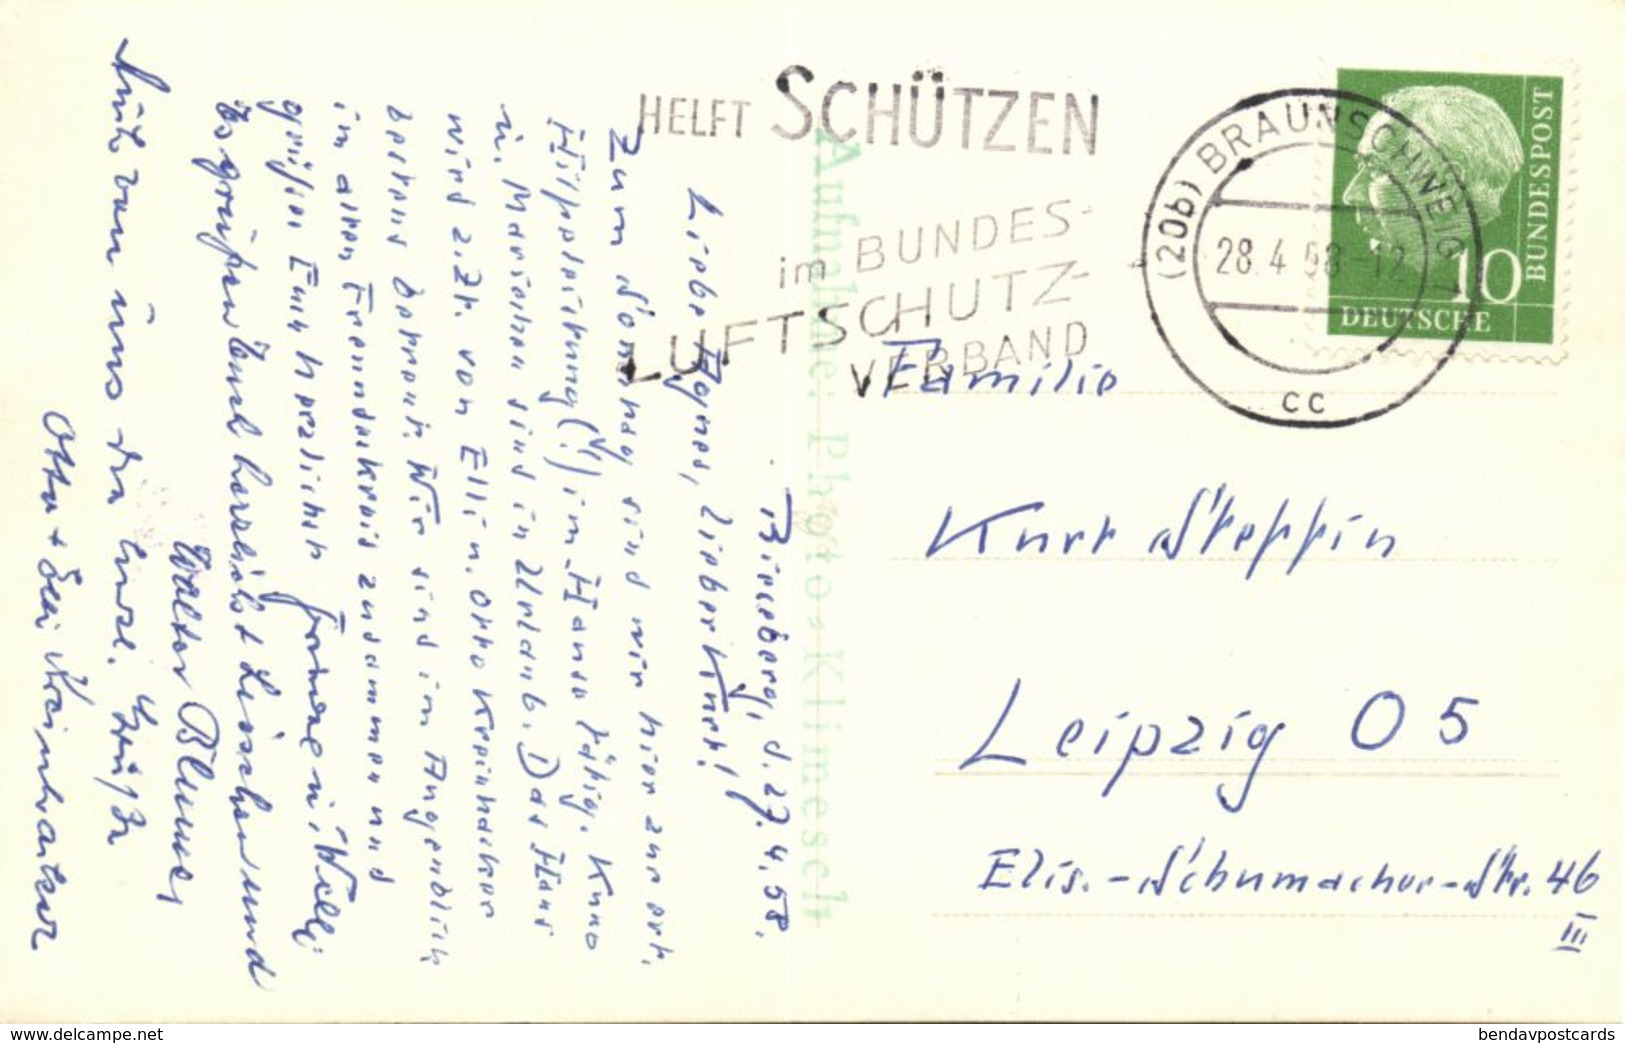 HELFT SCHÜTZEN
im BUNDES-
LUFTSCHUTZ-
VERBAND
(20b) BRAUNSCHWEIG 1
28.4.58-12
cc
DEUTSCHE
BUNDESPOST
10
Aufnahme: Photo-Klimesch
d. 27.4.58.
Liebe Agnes, lieber Kurt!
Zum Sonntag sind wir hier zur ört.
Hilfeleistung (!) im Hause tätig. Kuno
u. Mariechen sind in Urlaub. Das Haus
wird z.Zt. von Elli u. Otto
betreut. Wir sind im Augenblick
in alten Freundeskreis zusammen und
grüßen Euch herzlichst
Es grüßen Euch herzlichst Lieschen und
Walter
Auch von uns
Otto +
Familie
Kurt Steppin
Leipzig O 5
Elis.-Schumacher-Str. 46
III
www.delcampe.net
bendavpostcards